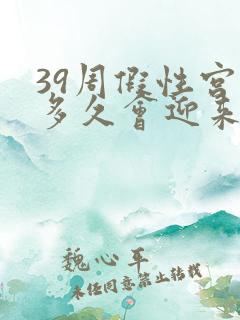 39周假性宫
多久会迎来
魏心平
未经同意禁止转载